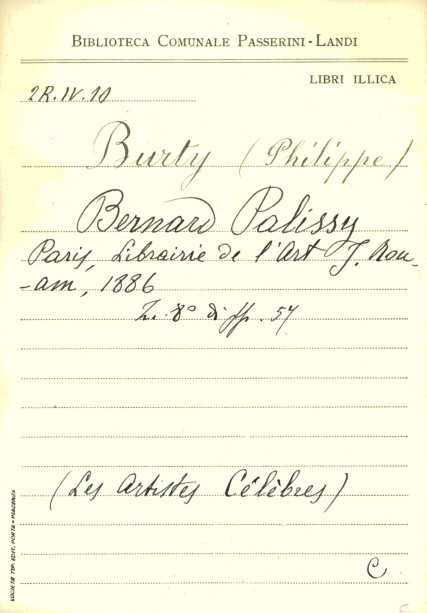 BIBLIOTECA COMUNALE PASSERINI-LANDI
LIBRI ILLICA
2R.IV.10
Burty (Philippe)
Bernard Palissy
Paris, Librairie de l'Art J. Rou-
-am, 1886
8° di pp. 57
(Les Artistes Célèbres)
C
C
SOCIETÀ TIP. EDIT. PORTA - PIACENZA